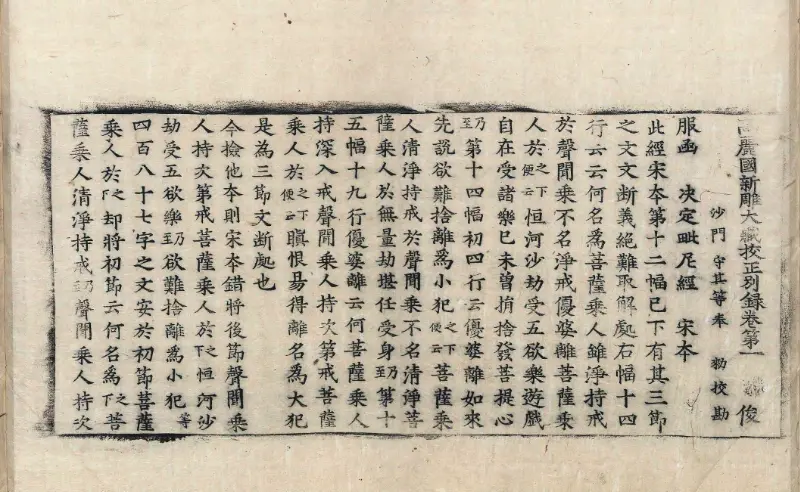 高麗國新雕大藏校正別錄卷第一 俊
沙門 守其等奉 勑校勘
服函 決定毗尼經 宋本
此經宋本第十二幅已下有其三節
之文文断義絕難取解處右幅十四
行云云何名爲菩薩乘人雖淨持戒
於聲聞乘不名淨戒優婆離菩薩乘
人於之下便云恒河沙劫受五欲樂遊戲
自在受諸樂已未曾捎捨發菩提心
乃至第十四幅初四行云優婆離如來
先說欲難捨離爲小犯之下便云菩薩乘
人清淨持戒於聲聞乘不名清淨菩
薩乘人於無量劫堪任受身乃至第十
五幅十九行優婆離云何菩薩乘人
持深入戒聲聞乘人持次第戒菩薩
乘人於之下便云瞋恨易得離名爲大犯
是爲三節文断處也
今撿他本則宋本錯將後節聲聞乘
人持次第戒菩薩乘人於之下恒河沙
劫受五欲樂乃至欲難捨離爲小犯等
四百八十七字之文安於初節菩薩
乘人於之下却將初節云何名爲之下菩
薩乘人清淨持戒乃至聲聞乘人持次